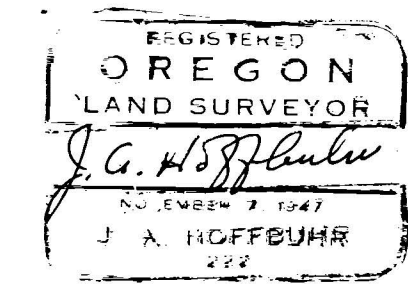 REGISTERED
OREGON
LAND SURVEYOR
J. A. Hoffbuhr
NOVEMBER 7, 1947
J. A. HOFFBUHR
222